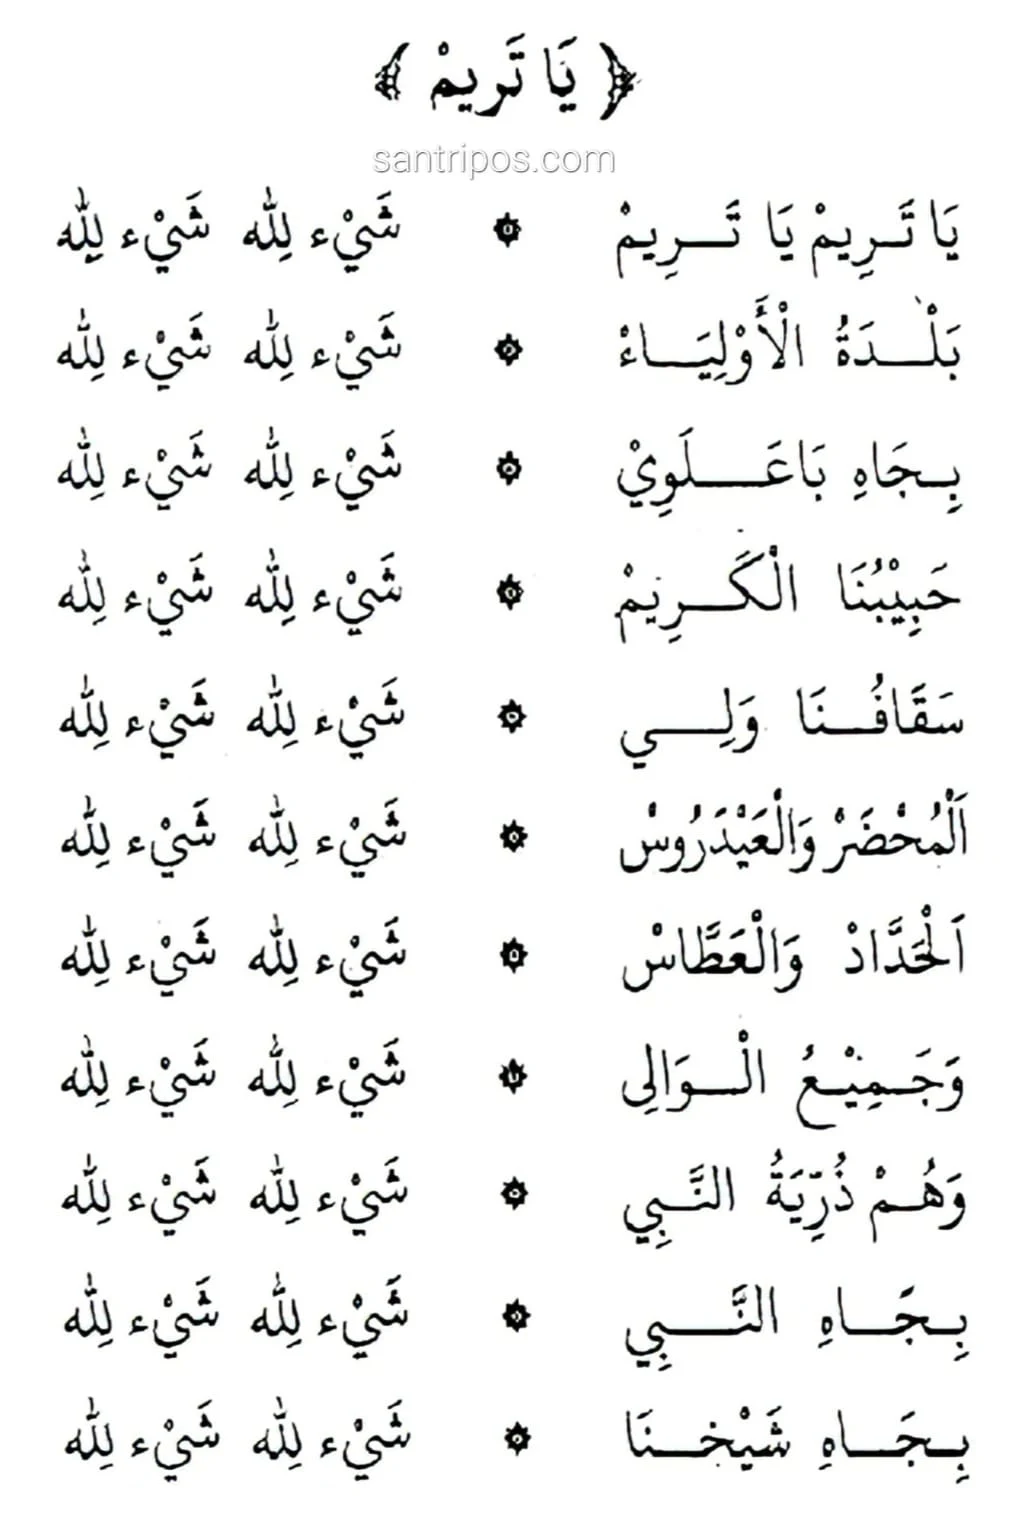 ﴿ يَا تَرِيمْ ﴾
santripos.com
يَا تَرِيمْ يَا تَـرِيمْ ۞ شَيْء لِلّٰه شَيْء لِلّٰه
بَلْـدَةُ الْأَوْلِيَـاءْ ۞ شَيْء لِلّٰه شَيْء لِلّٰه
بِـجَاهِ بَاعَـلَوِيْ ۞ شَيْء لِلّٰه شَيْء لِلّٰه
حَبِيْبُنَا الْكَـرِيْمْ ۞ شَيْء لِلّٰه شَيْء لِلّٰه
سَقَافُـنَا وَلِـي ۞ شَيْء لِلّٰه شَيْء لِلّٰه
اَلْمُحْضَرْ وَالْعَيْدَرُوسْ ۞ شَيْء لِلّٰه شَيْء لِلّٰه
اَلْحَدَّادْ وَالْعَطَّاسْ ۞ شَيْء لِلّٰه شَيْء لِلّٰه
وَجَـمِيْـعُ الْـوَالِى ۞ شَيْء لِلّٰه شَيْء لِلّٰه
وَهُـمْ ذُرِّيَةُ النَّـبِي ۞ شَيْء لِلّٰه شَيْء لِلّٰه
بِـجَـاهِ النَّـبِي ۞ شَيْء لِلّٰه شَيْء لِلّٰه
بِـجَـاهِ شَيْخِـنَا ۞ شَيْء لِلّٰه شَيْء لِلّٰه